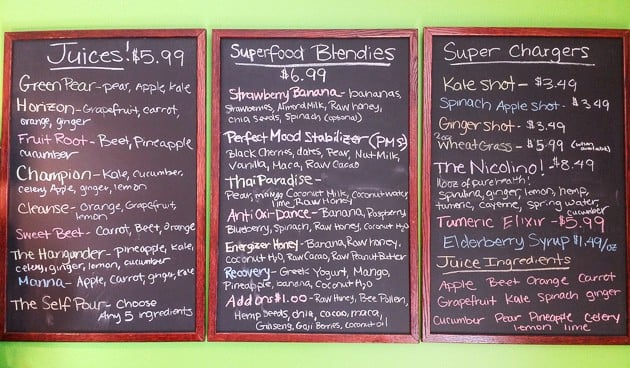 Juices! $5.99
Green Pear - pear, Apple, Kale
Horizon - Grapefruit, carrot,
orange, ginger
Fruit Root - Beet, Pineapple
cucumber
Champion - Kale, cucumber,
celery Apple, ginger, lemon
Cleanse - Orange, Grapefruit,
lemon
Sweet Beet - Carrot, Beet, Orange
The Hangunder - Pineapple, Kale,
celery, ginger, lemon, cucumber
Manna - Apple, Carrot, ginger, Kale
The Self Pour - Choose
Any 5 ingredients
Superfood Blendies
$6.99
Strawberry Banana - bananas,
Strawberries, Almond Milk, Raw honey,
chia Seeds, Spinach (optional)
Perfect Mood Stabilizer (PMS)
Black Cherries, dates, Pear, Nut Milk,
Vanilla, Maca, Raw Cacao
Thai Paradise -
Pear, mango, Coconut Milk, Coconut water
lime, Raw Honey
Anti Oxi-Dance - Banana, Raspberry
Blueberry, Spinach, Raw Honey, Coconut H2O
Energizer Honey - Banana, Raw honey,
Coconut H2O, Raw Cacao, Raw Peanut Butter
Recovery - Greek Yogurt, Mango,
Pineapple, banana, Coconut H2O
Add ons $1.00 - Raw Honey, Bee Pollen,
Hemp Seeds, chia, cacao, maca,
Ginseng, Goji Berries, coconut oil
Super Chargers
Kale shot - $3.49
Spinach Apple shot - $3.49
Ginger shot - $3.49
2oz
Wheat Grass - $5.99
The Nicolino! $8.49
16oz of pure health!
Spirulina, ginger, lemon, hemp,
tumeric, cayenne, spring water,
cucumber
Tumeric Elixir - $5.99
Elderberry Syrup $1.49/oz
Juice Ingredients
Apple Beet Orange Carrot
Grapefruit Kale Spinach ginger
Cucumber Pear Pineapple Celery
lemon lime